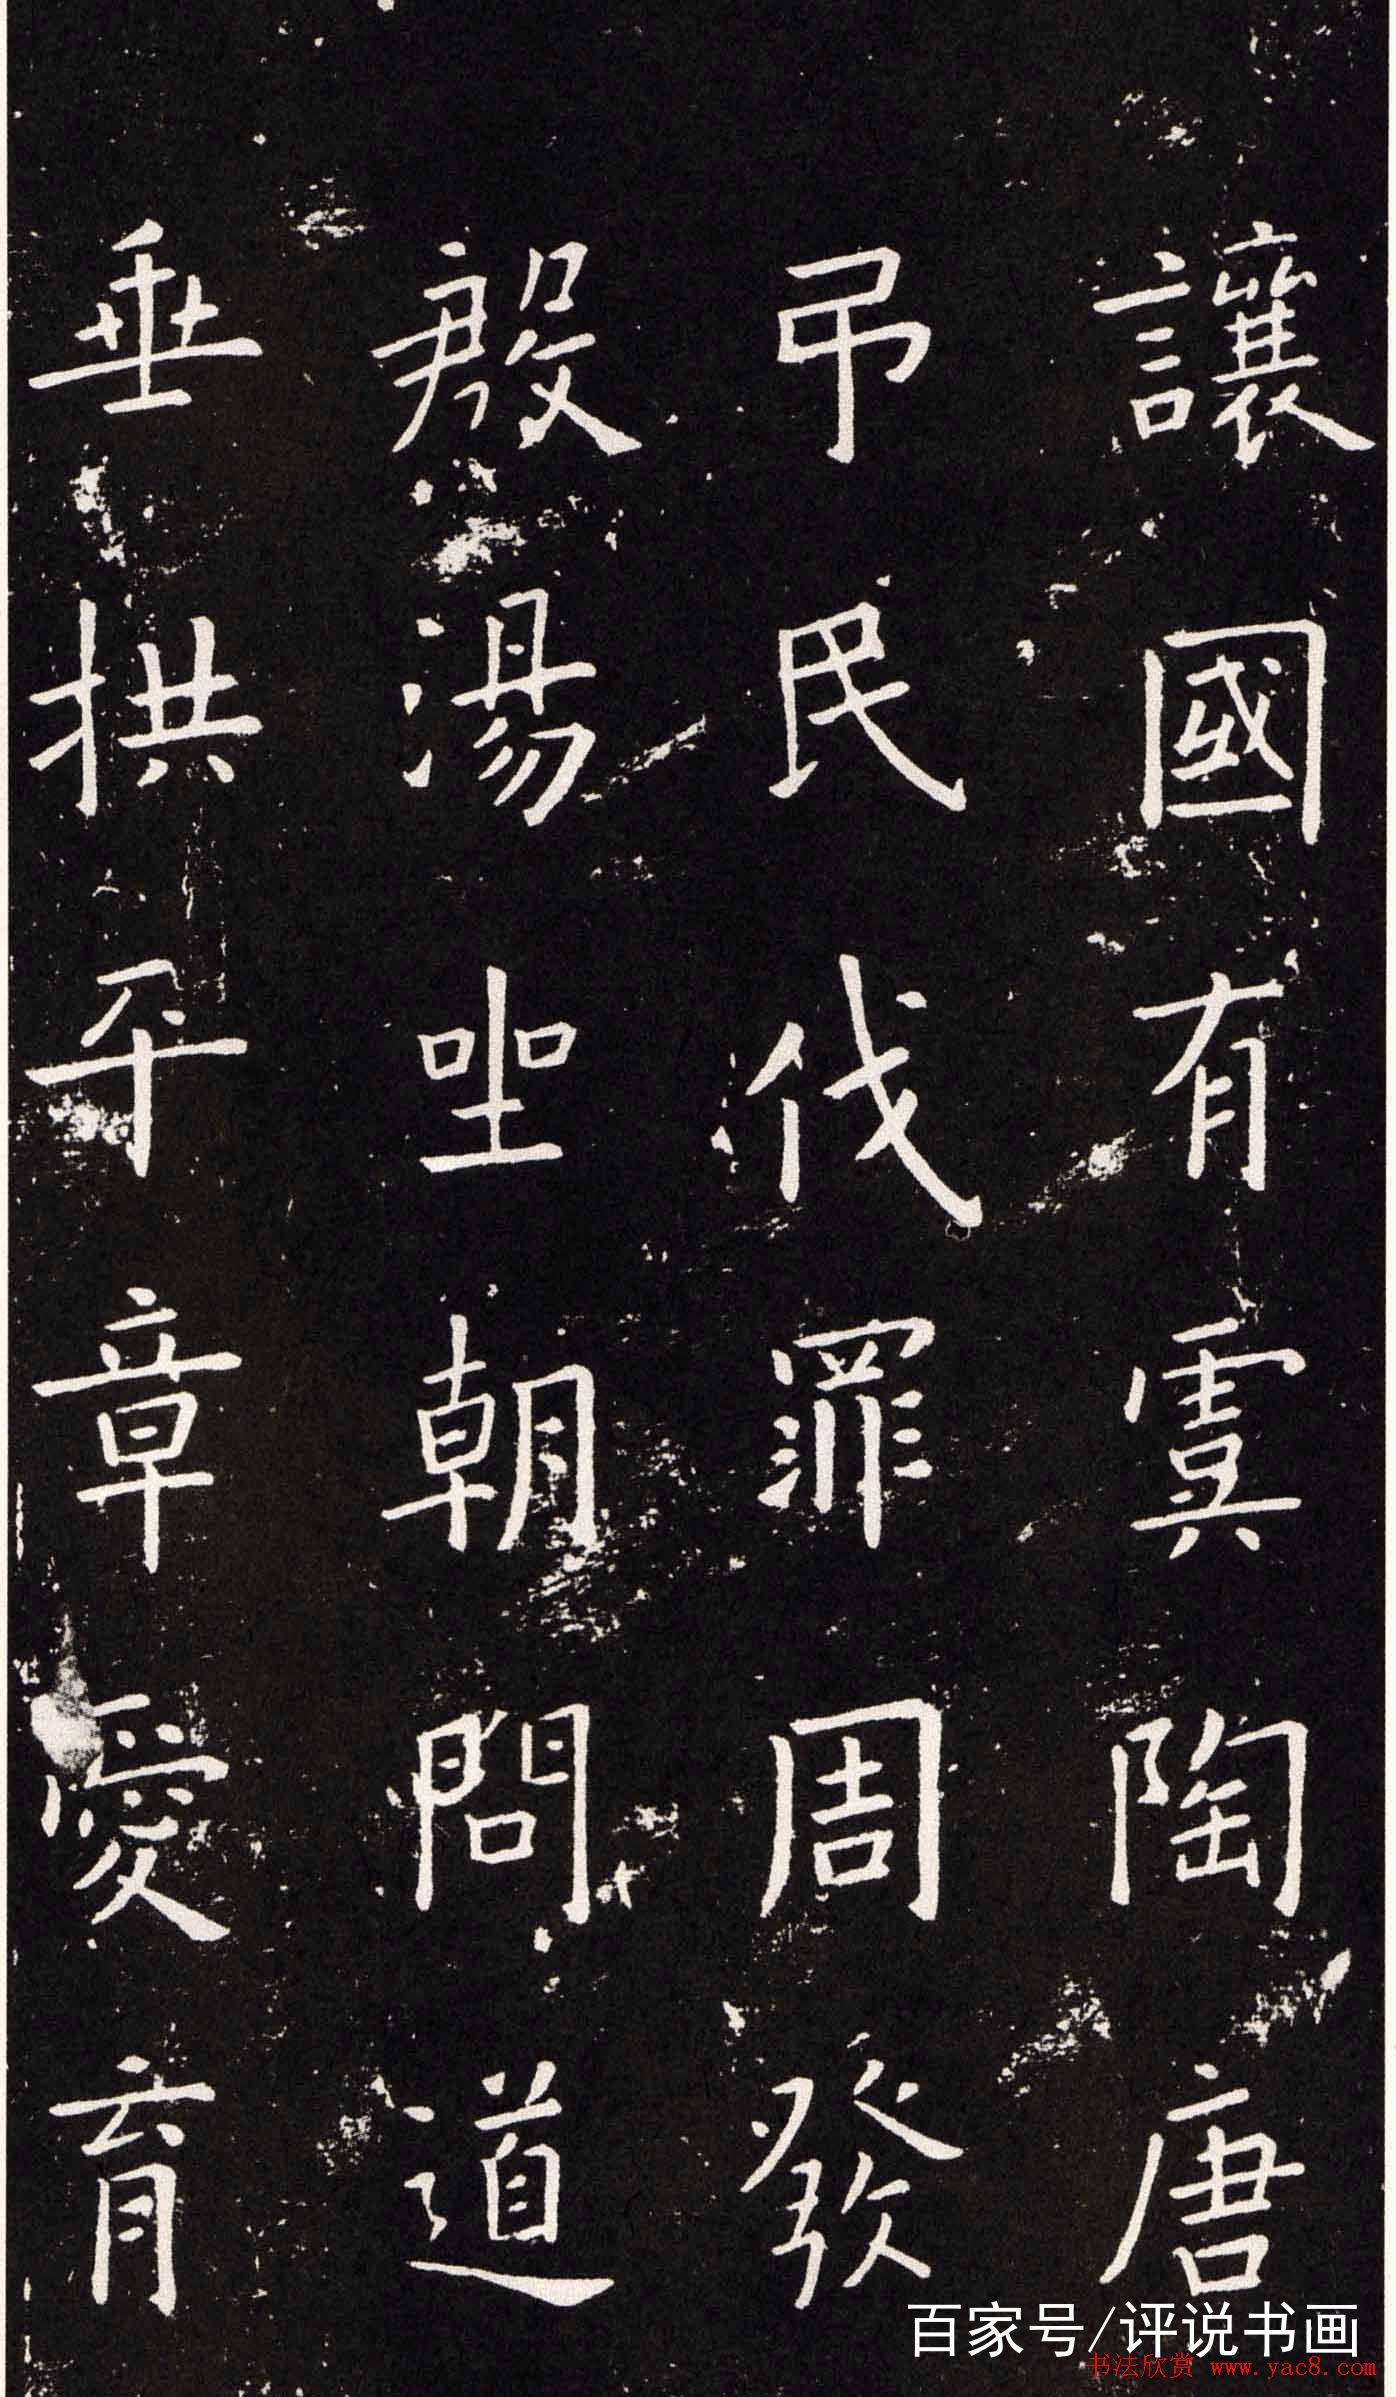 讓國有虞陶唐
弔民伐罪周發
殷湯坐朝問道
垂拱平章愛育
百家号/评说书画
书法欣赏 www.yac8.com